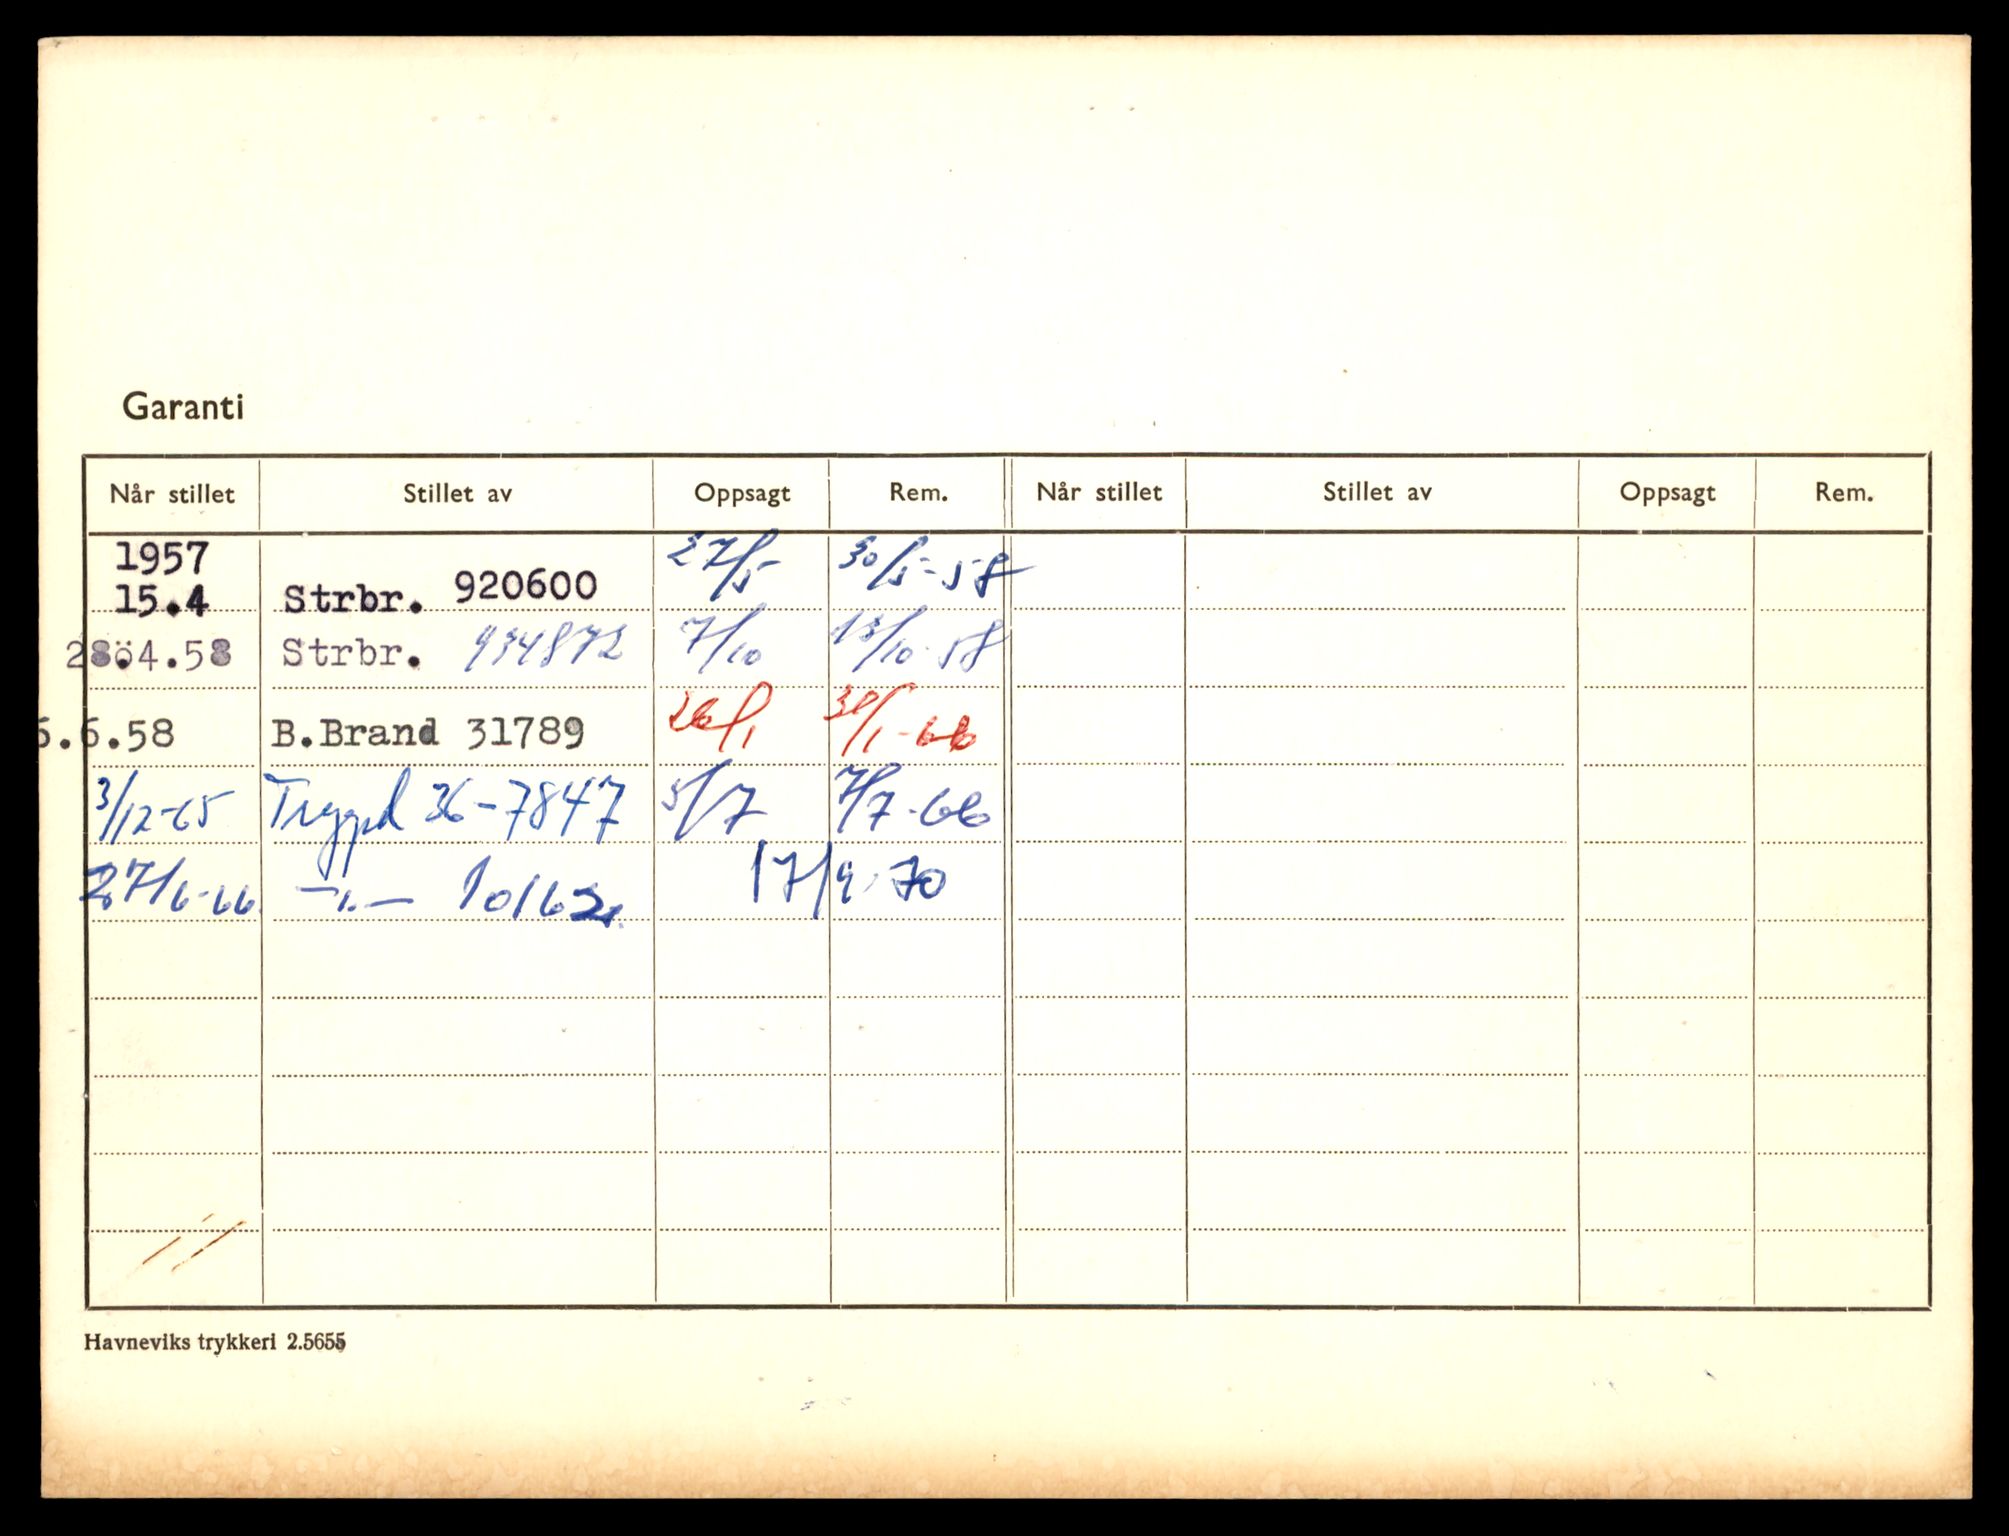 Garanti
Når stillet Stillet av Oppsagt Rem. Når stillet Stillet av Oppsagt Rem.
1957
15.4 Strbr. 920600 27/5 30/5-58
28.4.58 Strbr. 934872 7/10 13/10-58
6.6.58 B.Brand 31789 26/1 31/1-66
3/12-65 Trygd 36-7847 5/7 7/7-66
27/6-66 -"- 10162 17/9-70
Havneviks trykkeri 2.5655